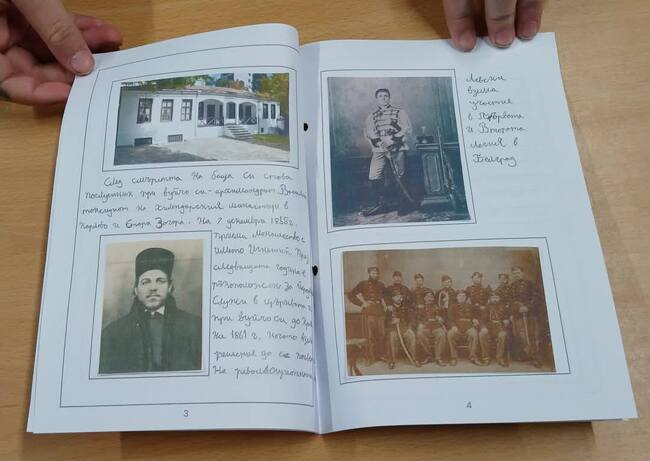 След смъртта на баща си става
послушник при вуйчо си - архимандрит Василий
таксидиот на Хилендарския манастир в
Карлово и Стара Загора. На 7 декември 1858 г.
приема монашество с
името Игнатий. През
следващата година е
ръкоположен за
Служи в църквата
при вуйчо си до края
на 1861 г, когато взема
решение да се
на революционната
3
Левски
взима
участие
в Първата
и Втората
легия в
Белград
4